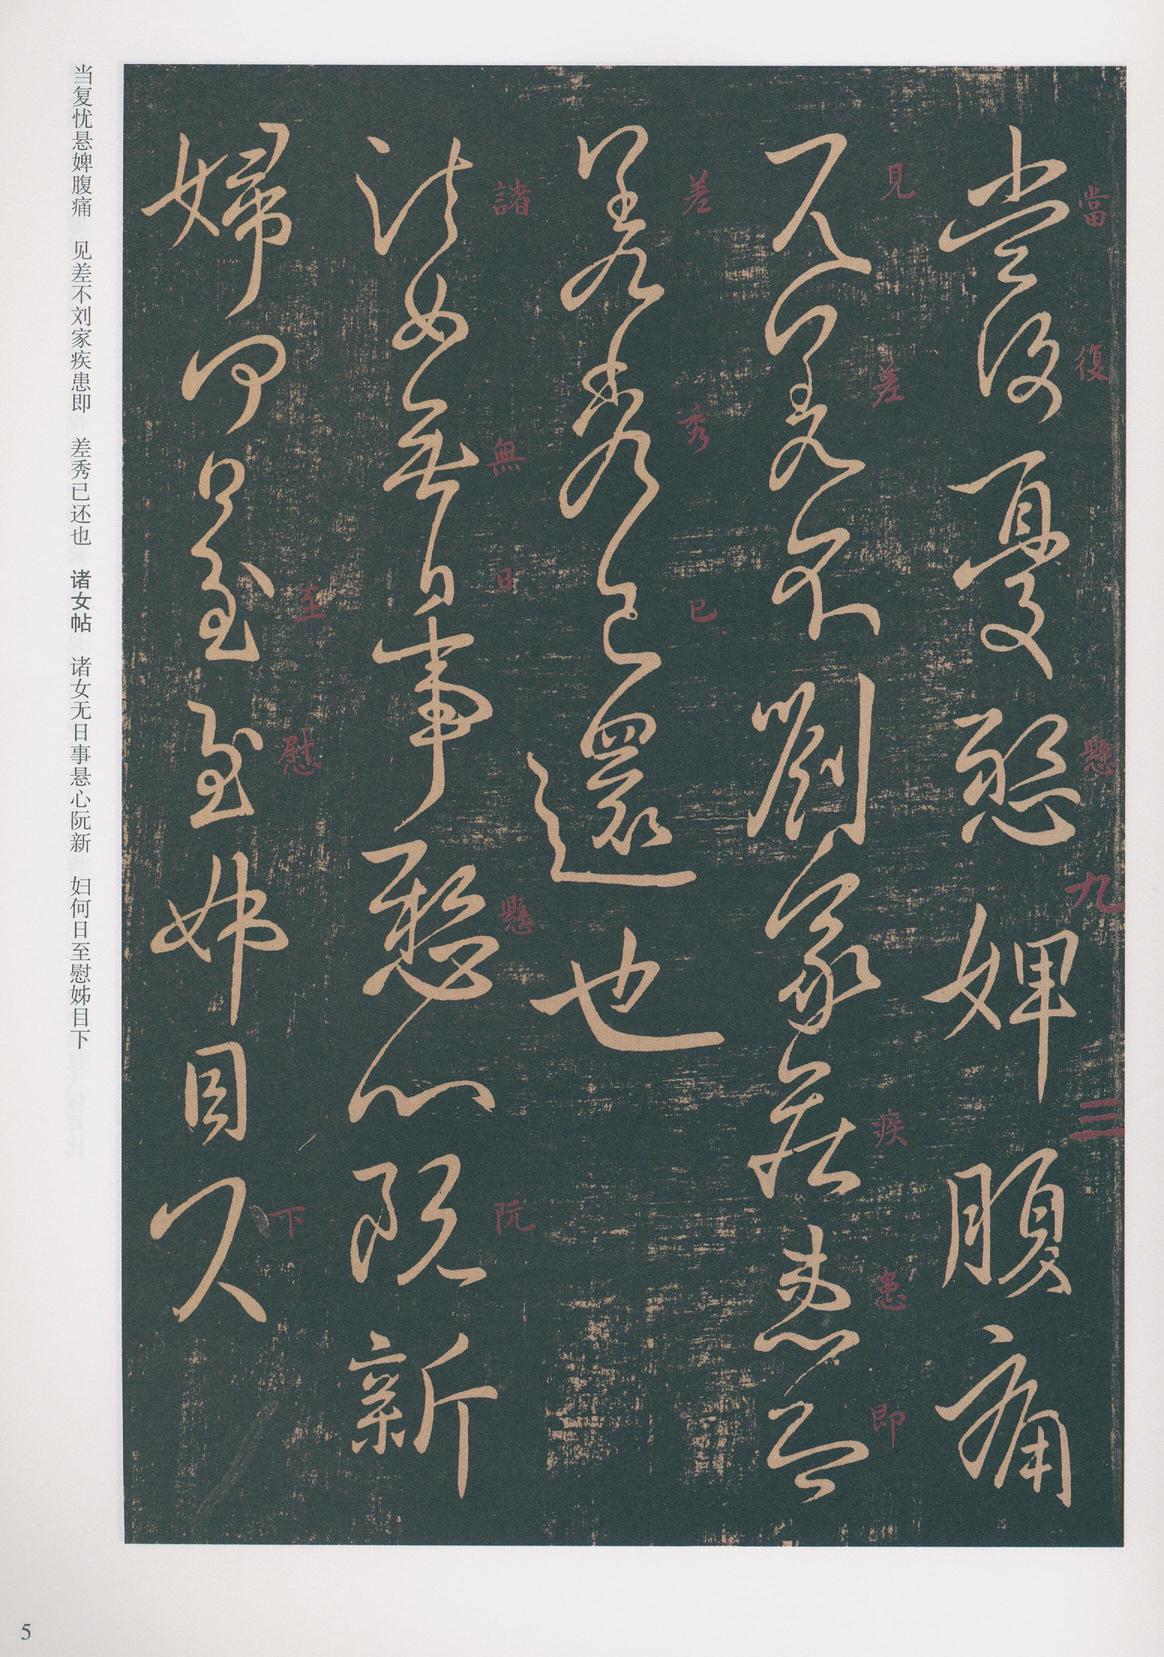 當復憂懸婢腹痛
當復懸九三
見差不劉家疾患即
見差疾患即
差秀已還也
差秀已
諸女無日事懸心阮新
諸無日懸阮
婦何日至慰姊目下
至慰下
当复忧悬婢腹痛 见差不刘家疾患即 差秀已还也 诸女帖 诸女无日事悬心阮新 妇何日至慰姊目下
5